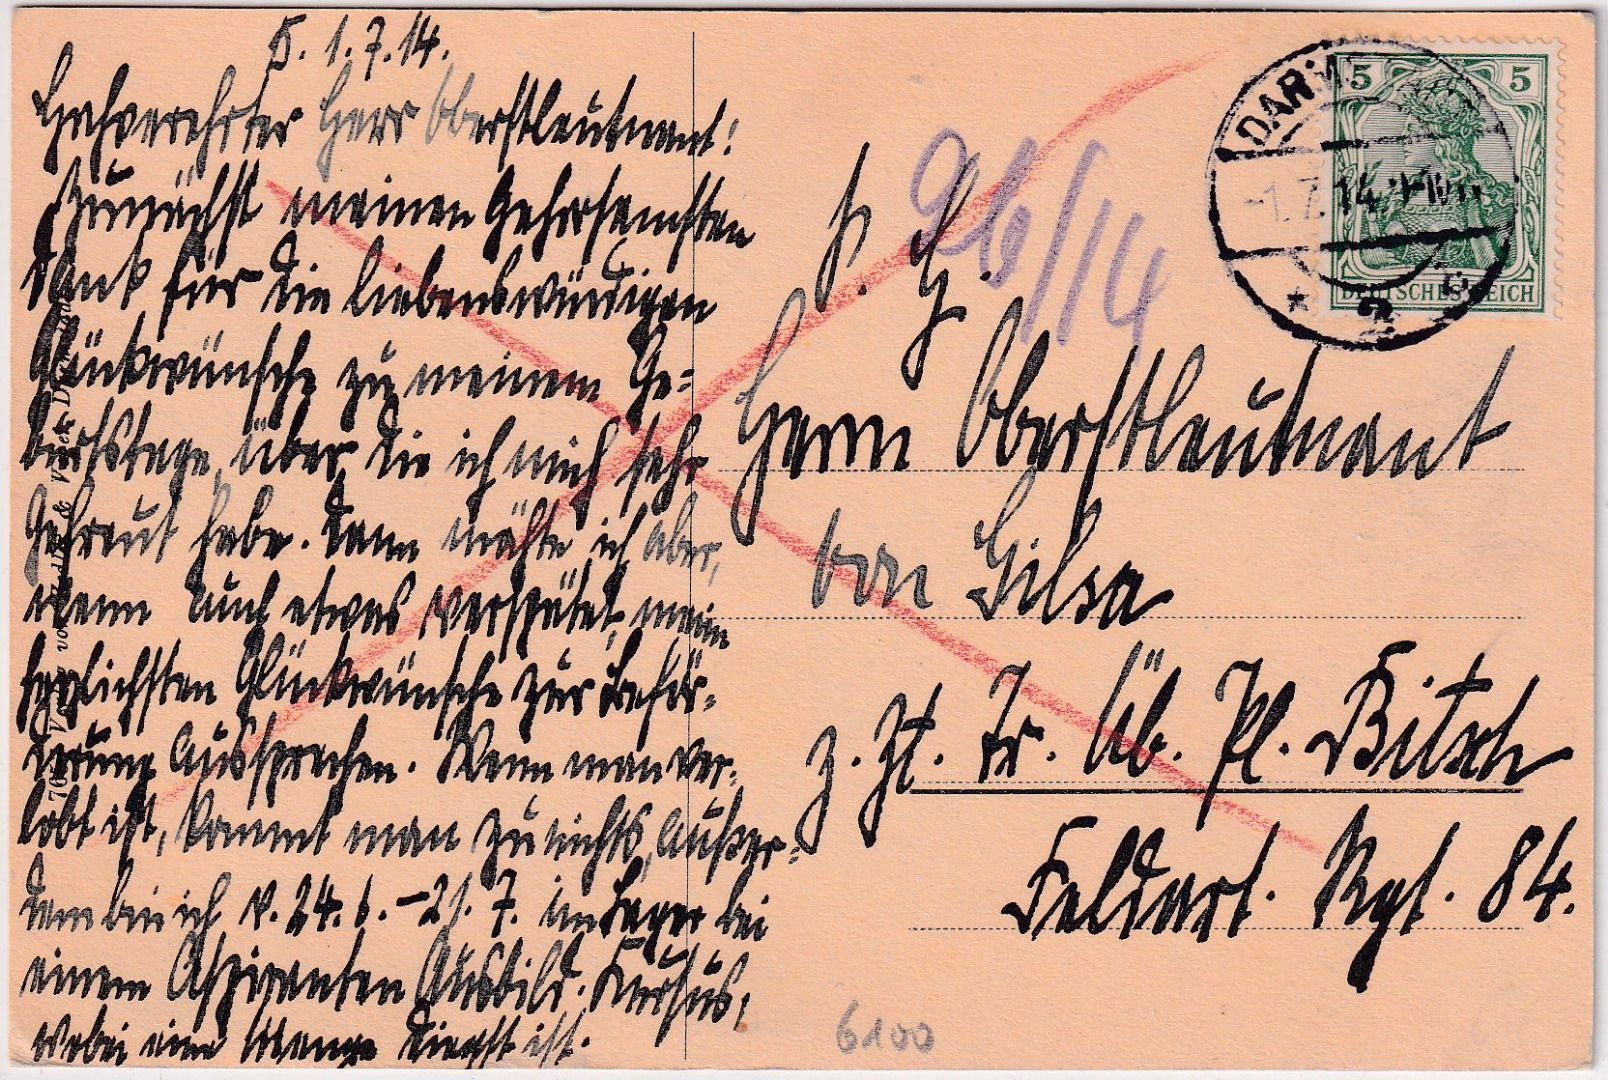 D. 1. 7. 14.
Hochverehrter Herr Oberstleutnant!
Zunächst meinen gehorsamsten
Dank für die liebenswürdigen
Glückwünsche zu meinem Ge=
burtstage, über die ich mich sehr
gefreut habe. Dann möchte ich aber,
wenn auch etwas verspätet, meine
herzlichsten Glückwünsche zur Beför=
derung aussprechen. Wenn man ver=
lobt ist, kommt man zu nichts, außer=
dem bin ich v. 24. 6. – 21. 7. im Lager bei
einem Aspiranten Ausbild. Kursus,
wobei eine Menge Dienst ist.
S. H.
Herrn Oberstleutnant
von Gilsa
z. Zt. Tr. Üb. Pl. Bitsch
Feldart. Rgt. 84.
96/14
6100
DARM
1.7.14
5 5
DEUTSCHES REICH